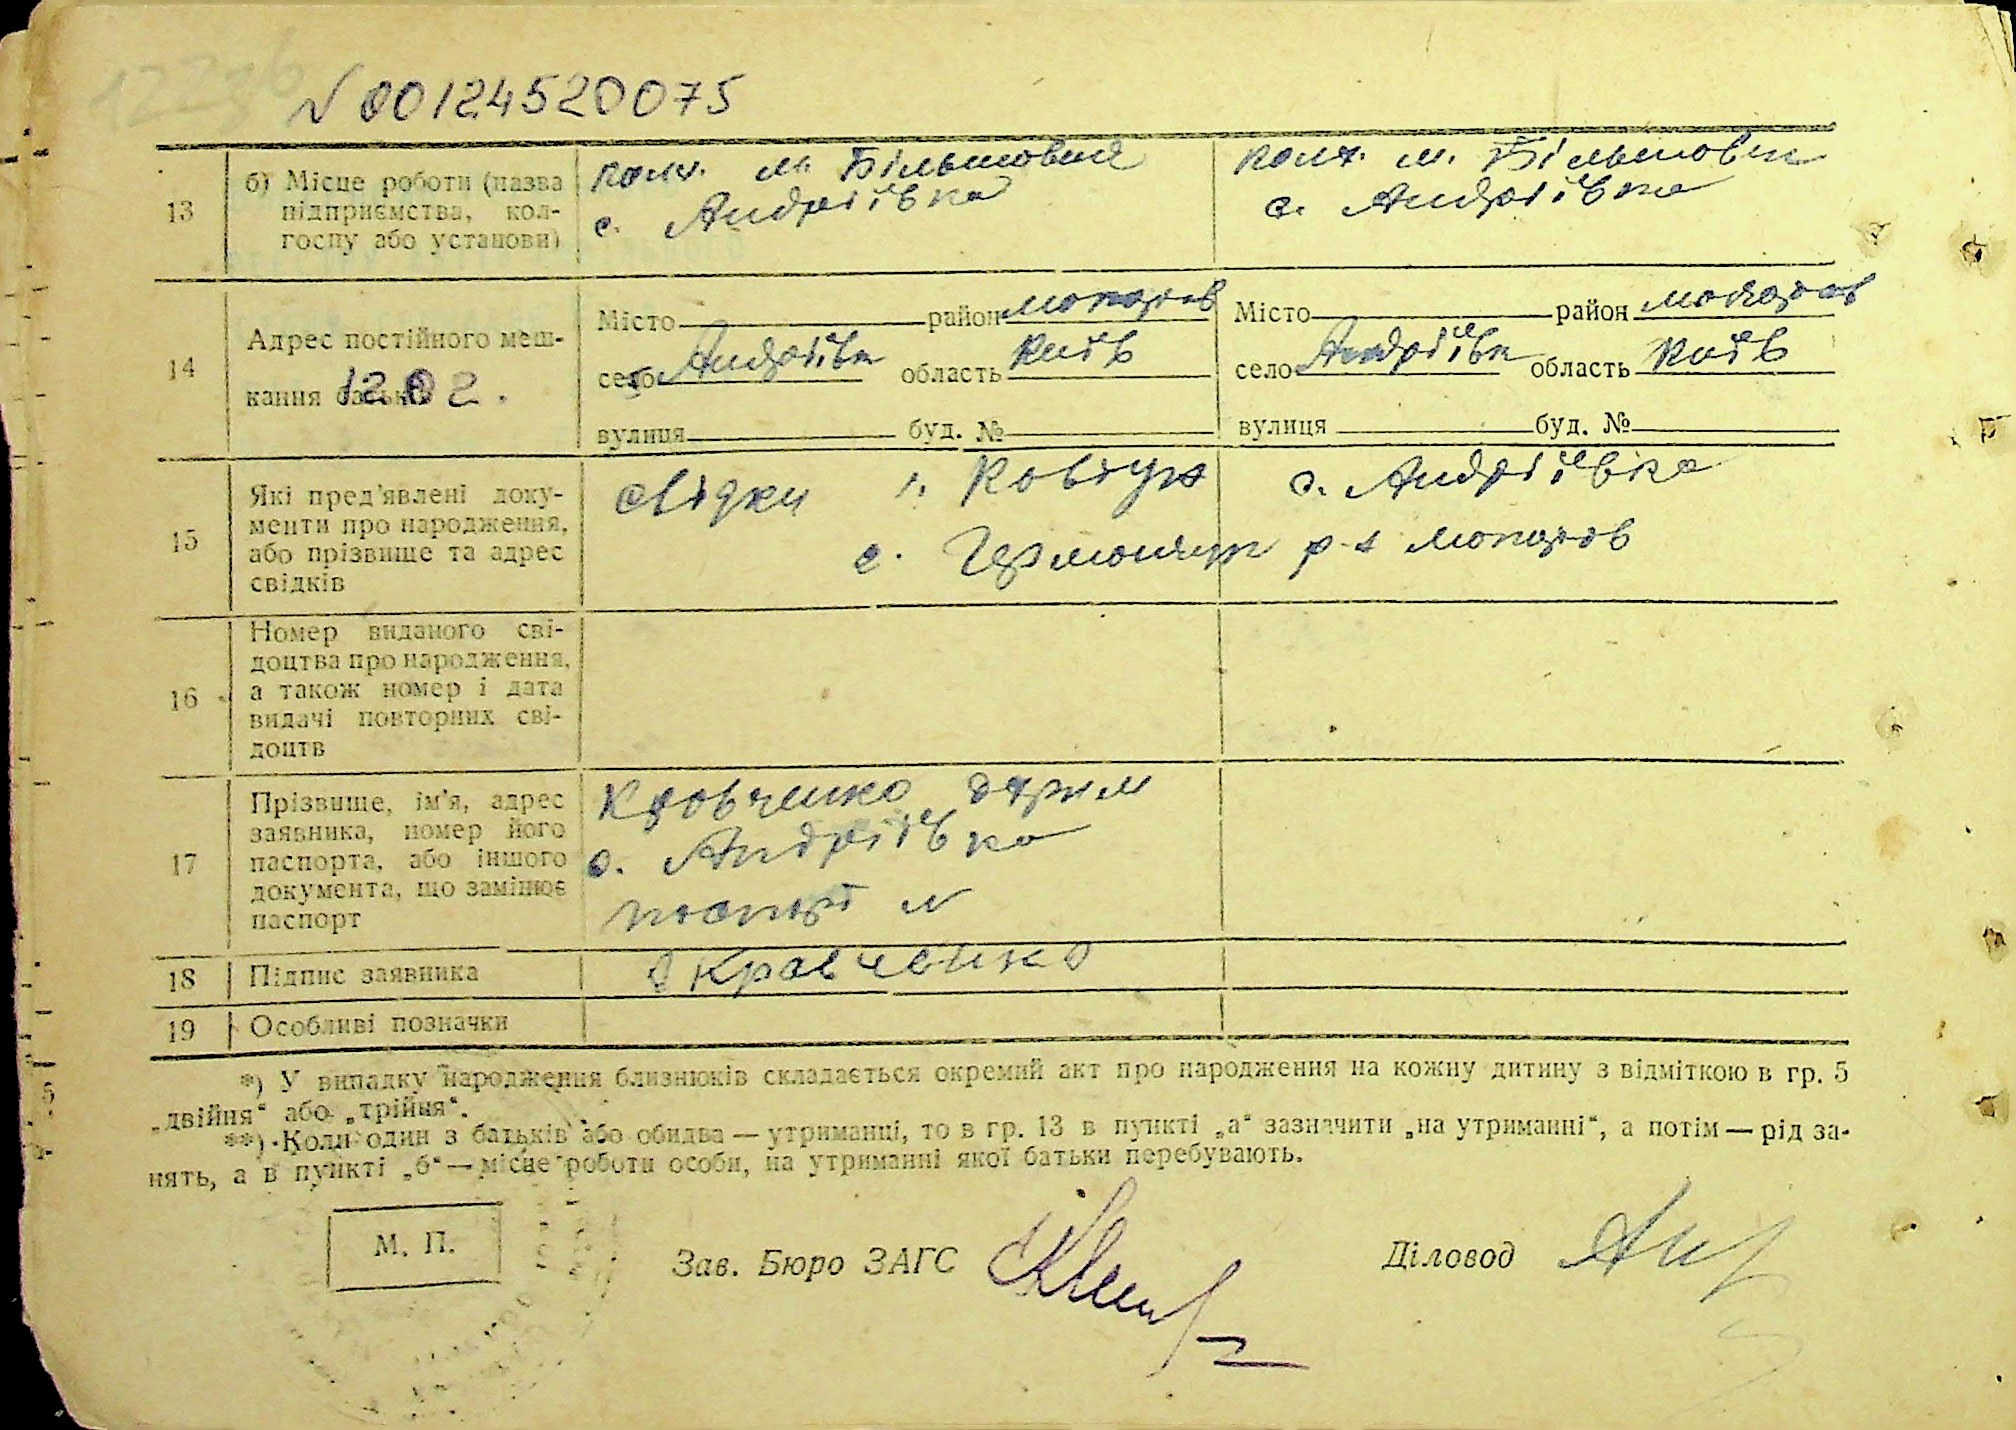 N 00124520075
13
б) Місце роботи (назва підприємства, кол-
госпу або установи)
колг. ім. Більшовик
с. Андріївка
колг. ім. Більшовик
с. Андріївка
14
Адрес постійного меш-
кання батьків
1202.
Місто район Макарів
село Андріївка область Київ
вулиця буд. №
Місто район Макарів
село Андріївка область Київ
вулиця буд. №
15
Які пред'явлені доку-
менти про народження,
або прізвище та адрес
свідків
свідки с. Андріївка
с. р-н Макарів
16
Номер виданого сві-
доцтва про народження,
а також номер і дата
видачі повторних сві-
доцтв
17
Прізвище, ім'я, адрес
заявника, номер його
паспорта, або іншого
документа, що замінює
паспорт
Кравченко
с. Андріївка
паспорт N
18
Підпис заявника
Кравченко
19
Особливі позначки
*) У випадку народження близнюків складається окремий акт про народження на кожну дитину з відміткою в гр. 5
„двійня“ або „трійня“.
**) Коли один з батьків або обидва — утриманці, то в гр. 13 в пункті „а“ зазначити „на утриманні“, а потім — рід за-
нять, а в пункті „б“ — місце роботи особи, на утриманні якої батьки перебувають.
М. П.
Зав. Бюро ЗАГС
Діловод
5